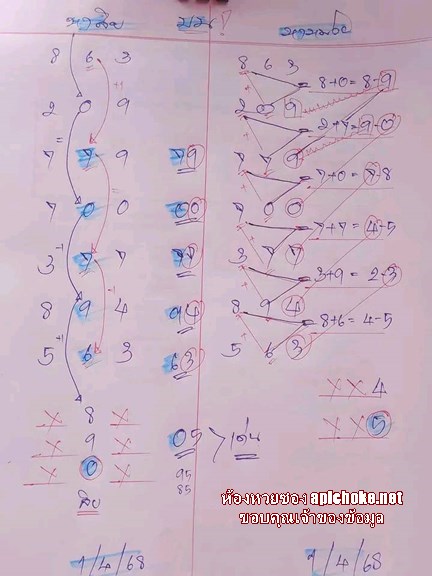 8 6 3 8 6 3
8+0=8-9
2 0 9 2 0 9
2+7=9-0
7 7 9 79 7 7 9
7+0=7-8
7 0 0 00 7 0 0
7+7=4-5
3 7 7 77 3 7 7
3+9=2-3
8 9 4 94 8 9 4
8+6=4-5
5 6 3 63 5 6 3
X X 4
X 8 X
X X 5
X 9 X 05 > เด่น
X 0 X 95
85
สิบ
ห้องหวยซอง apichoke.net
ขอบคุณเจ้าของข้อมูล
1/4/68 1/4/68